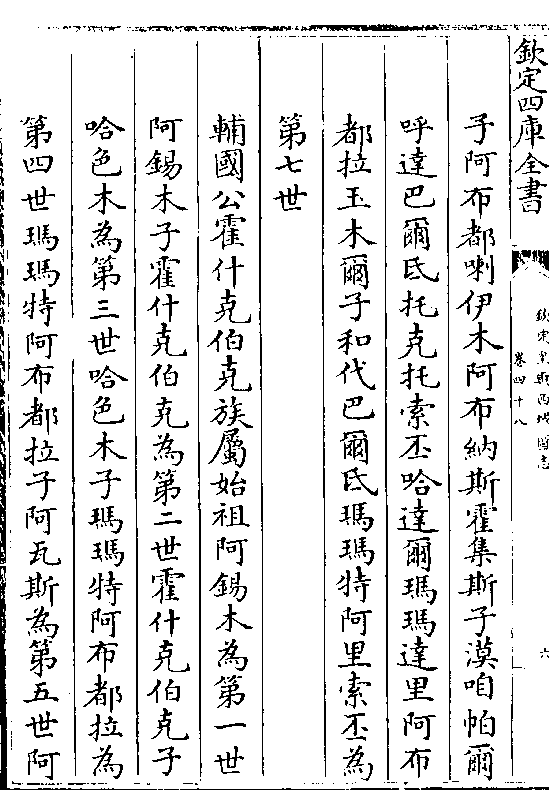 欽定四庫全書
欽定皇輿西域圖志
卷四十八
六
子阿布都喇伊木阿布納斯霍集斯子漠咱帕爾
呼達巴爾氐托克托索丕哈達爾瑪瑪達里阿布
都拉玉木爾子和代巴爾氐瑪瑪特阿里索丕為
第七世
輔國公霍什克伯克族屬始祖阿錫木為第一世
阿錫木子霍什克伯克為第二世霍什克伯克子
哈色木為第三世哈色木子瑪瑪特阿布都拉為
第四世瑪瑪特阿布都拉子阿瓦斯為第五世阿